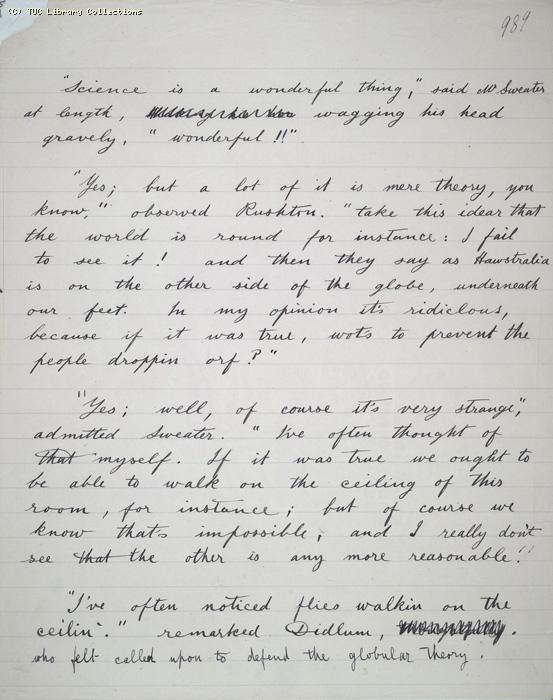 (C) TUC Library Collections
984
"Science is a wonderful thing", said Mr Sweater
at length, wagging his head
gravely, "wonderful!!"
"Yes; but a lot of it is mere theory, you
know," observed Rushton. "take this idear that
the world is round for instance: I fail
to see it! and then they say as Hawstralia
is on the other side of the globe, underneath
our feet. In my opinion it's ridiclous,
because if it was true, wots to prevent the
people droppin orf?"
"Yes; well, of course it's very strange",
admitted Sweater. "I've often thought of
that myself. If it was true we ought to
be able to walk on the ceiling of this
room, for instance; but of course we
know that's impossible, and I really don't
see that the other is any more reasonable."
"I've often noticed flies walkin on the
ceilin'." remarked Didlum, .
who felt called upon to defend the globular theory.